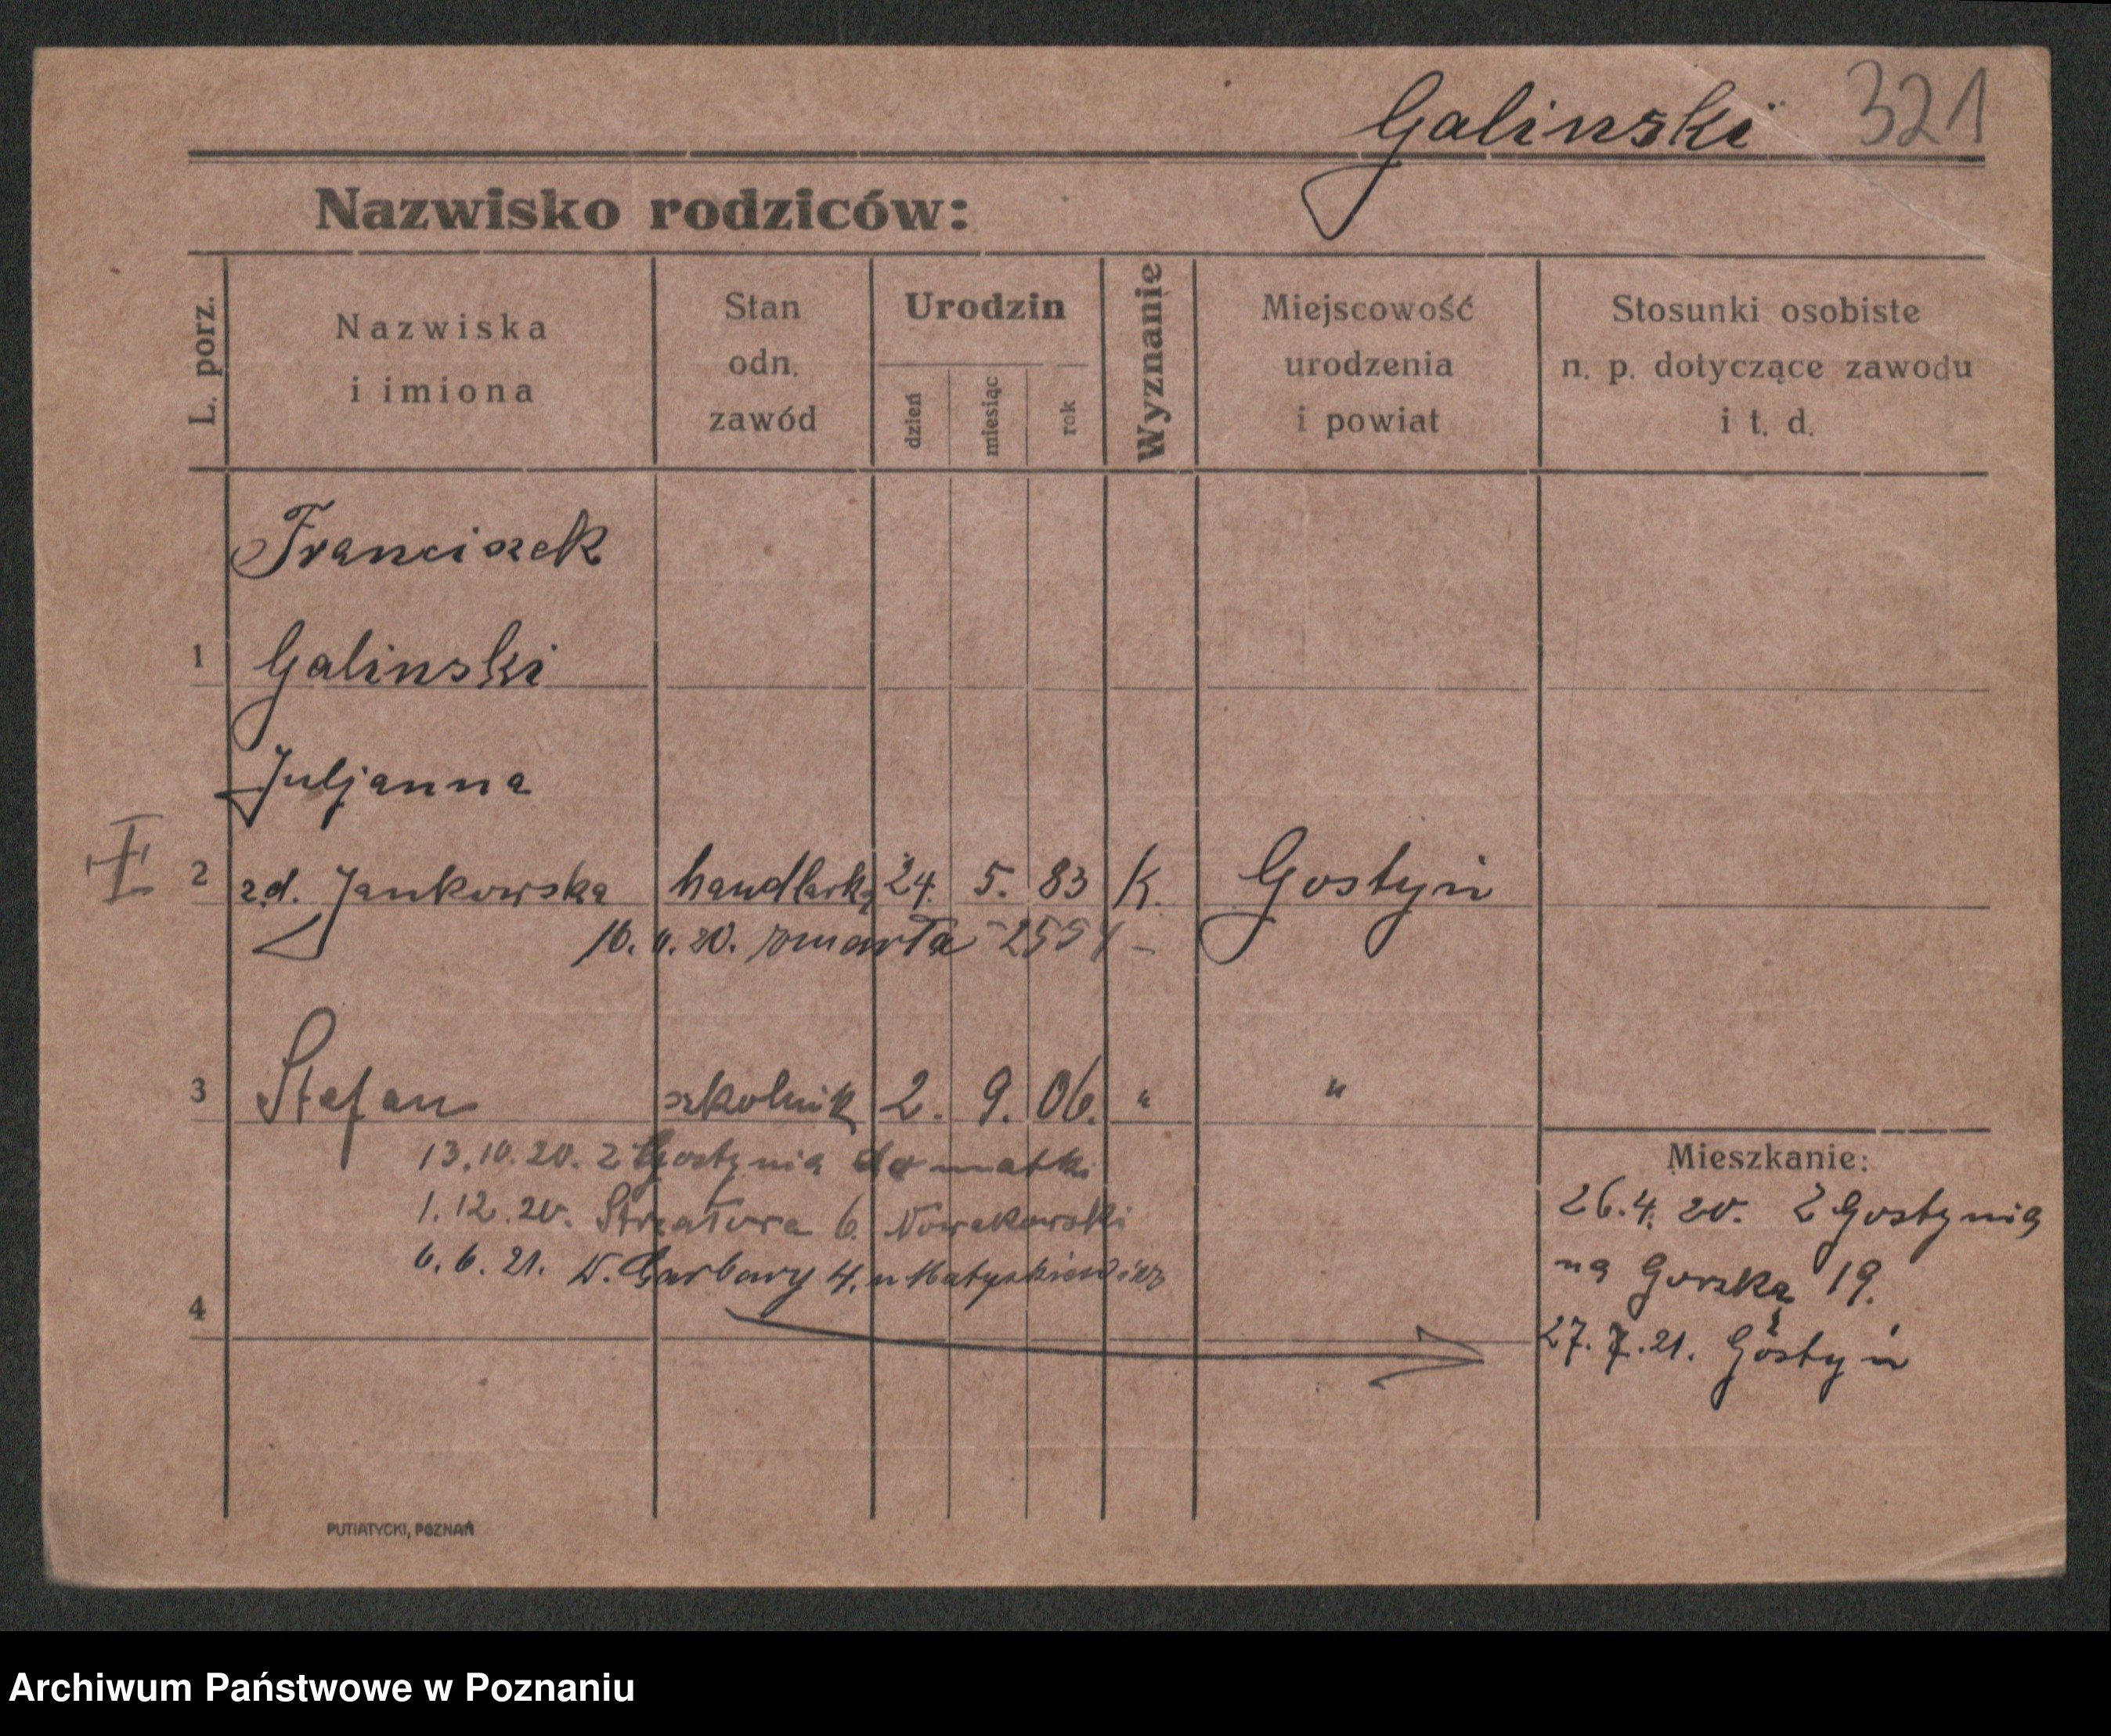 Galinski 321
Nazwisko rodziców:
L. porz.
Nazwiska
i imiona
Stan
odn.
zawód
Urodzin
dzień
miesiąc
rok
Wyznanie
Miejscowość
urodzenia
i powiat
Stosunki osobiste
n. p. dotyczące zawodu
i t. d.
Franciszek
1 Galinski
Juljanna
2 zd. Jankowska handlarka 24. 5. 83 K. Gostyń
zmarła
3 Stefan szkolnik 2. 9. 06. " "
13.10.20. z Gostynia do matki
1.12.20. 6. Nowakowski
6.6.21. W. Garbary 4. u Matyskiewicz
4
Mieszkanie:
26.4.20. Z Gostynia
na 19.
27.7.21. Gostyń
PUTIATYCKI, POZNAŃ
Archiwum Państwowe w Poznaniu